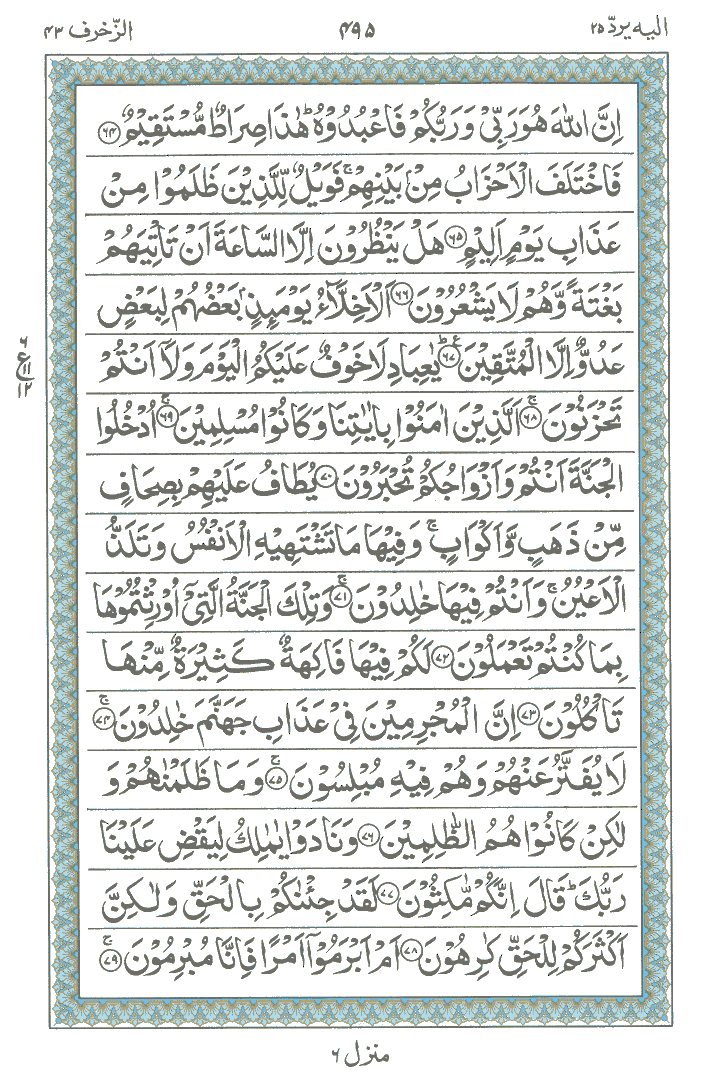 الیه یردّ ۲۵
۴۹۵
الزّخرف ۴۳
اِنَّ اللّٰهَ هُوَ رَبِّىْ وَ رَبُّكُمْ فَاعْبُدُوْهُ ؕ هٰذَا صِرَاطٌ مُّسْتَقِيْمٌ ﴿۶۴﴾
فَاخْتَلَفَ الْاَحْزَابُ مِنْۢ بَيْنِهِمْ ۚ فَوَيْلٌ لِّلَّذِيْنَ ظَلَمُوْا مِنْ
عَذَابِ يَوْمٍ اَلِيْمٍ ﴿۶۵﴾ هَلْ يَنْظُرُوْنَ اِلَّا السَّاعَةَ اَنْ تَاْتِيَهُمْ
بَغْتَةً وَّهُمْ لَا يَشْعُرُوْنَ ﴿۶۶﴾ اَلْاَخِلَّآءُ يَوْمَئِذٍۭ بَعْضُهُمْ لِبَعْضٍ
عَدُوٌّ اِلَّا الْمُتَّقِيْنَ ﴿۶۷﴾ؕ ع يٰعِبَادِ لَا خَوْفٌ عَلَيْكُمُ الْيَوْمَ وَلَاۤ اَنْتُمْ
تَحْزَنُوْنَ ﴿۶۸﴾ۚ اَلَّذِيْنَ اٰمَنُوْا بِاٰيٰتِنَا وَكَانُوْا مُسْلِمِيْنَ ﴿۶۹﴾ۚ اُدْخُلُوا
الْجَنَّةَ اَنْتُمْ وَاَزْوَاجُكُمْ تُحْبَرُوْنَ ﴿۷۰﴾ يُطَافُ عَلَيْهِمْ بِصِحَافٍ
مِّنْ ذَهَبٍ وَّاَكْوَابٍ ۚ وَفِيْهَا مَا تَشْتَهِيْهِ الْاَنْفُسُ وَتَلَذُّ
الْاَعْيُنُ ۚ وَاَنْتُمْ فِيْهَا خٰلِدُوْنَ ﴿۷۱﴾ۚ وَتِلْكَ الْجَنَّةُ الَّتِىْۤ اُوْرِثْتُمُوْهَا
بِمَا كُنْتُمْ تَعْمَلُوْنَ ﴿۷۲﴾ لَكُمْ فِيْهَا فَاكِهَةٌ كَثِيْرَةٌ مِّنْهَا
تَاْكُلُوْنَ ﴿۷۳﴾ اِنَّ الْمُجْرِمِيْنَ فِىْ عَذَابِ جَهَنَّمَ خٰلِدُوْنَ ﴿۷۴﴾ۚ
لَا يُفَتَّرُ عَنْهُمْ وَهُمْ فِيْهِ مُبْلِسُوْنَ ﴿۷۵﴾ۚ وَمَا ظَلَمْنٰهُمْ وَ
لٰكِنْ كَانُوْا هُمُ الظّٰلِمِيْنَ ﴿۷۶﴾ وَنَادَوْا يٰمٰلِكُ لِيَقْضِ عَلَيْنَا
رَبُّكَ ؕ قَالَ اِنَّكُمْ مّٰكِثُوْنَ ﴿۷۷﴾ لَقَدْ جِئْنٰكُمْ بِالْحَقِّ وَلٰكِنَّ
اَكْثَرَكُمْ لِلْحَقِّ كٰرِهُوْنَ ﴿۷۸﴾ اَمْ اَبْرَمُوْۤا اَمْرًا فَاِنَّا مُبْرِمُوْنَ ﴿۷۹﴾ۚ
۶
ع ۱۱
۱۲
منزل ۶